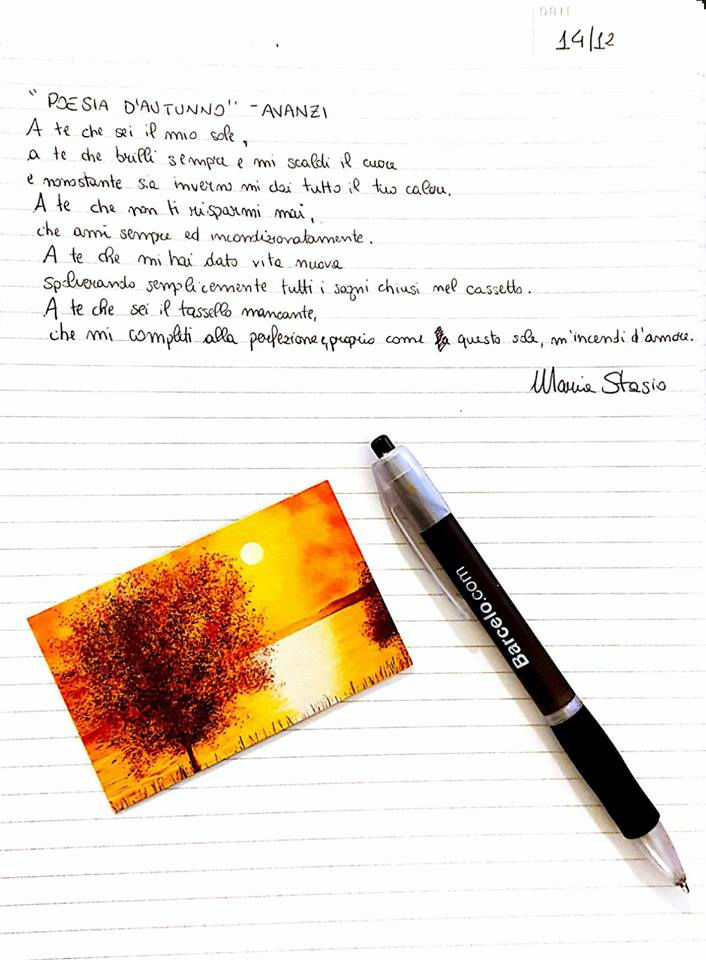 DATE
14/12
"POESIA D'AUTUNNO" - AVANZI
A te che sei il mio sole,
a te che brilli sempre e mi scaldi il cuore
e nonostante sia inverno mi dai tutto il tuo calore.
A te che non ti risparmi mai,
che ami sempre ed incondizionatamente.
A te che mi hai dato vita nuova
spolverando semplicemente tutti i sogni chiusi nel cassetto.
A te che sei il tassello mancante,
che mi completi alla perfezione e, proprio come questo sole, m'incendi d'amore.
Maria Stasio
Barcelo.com